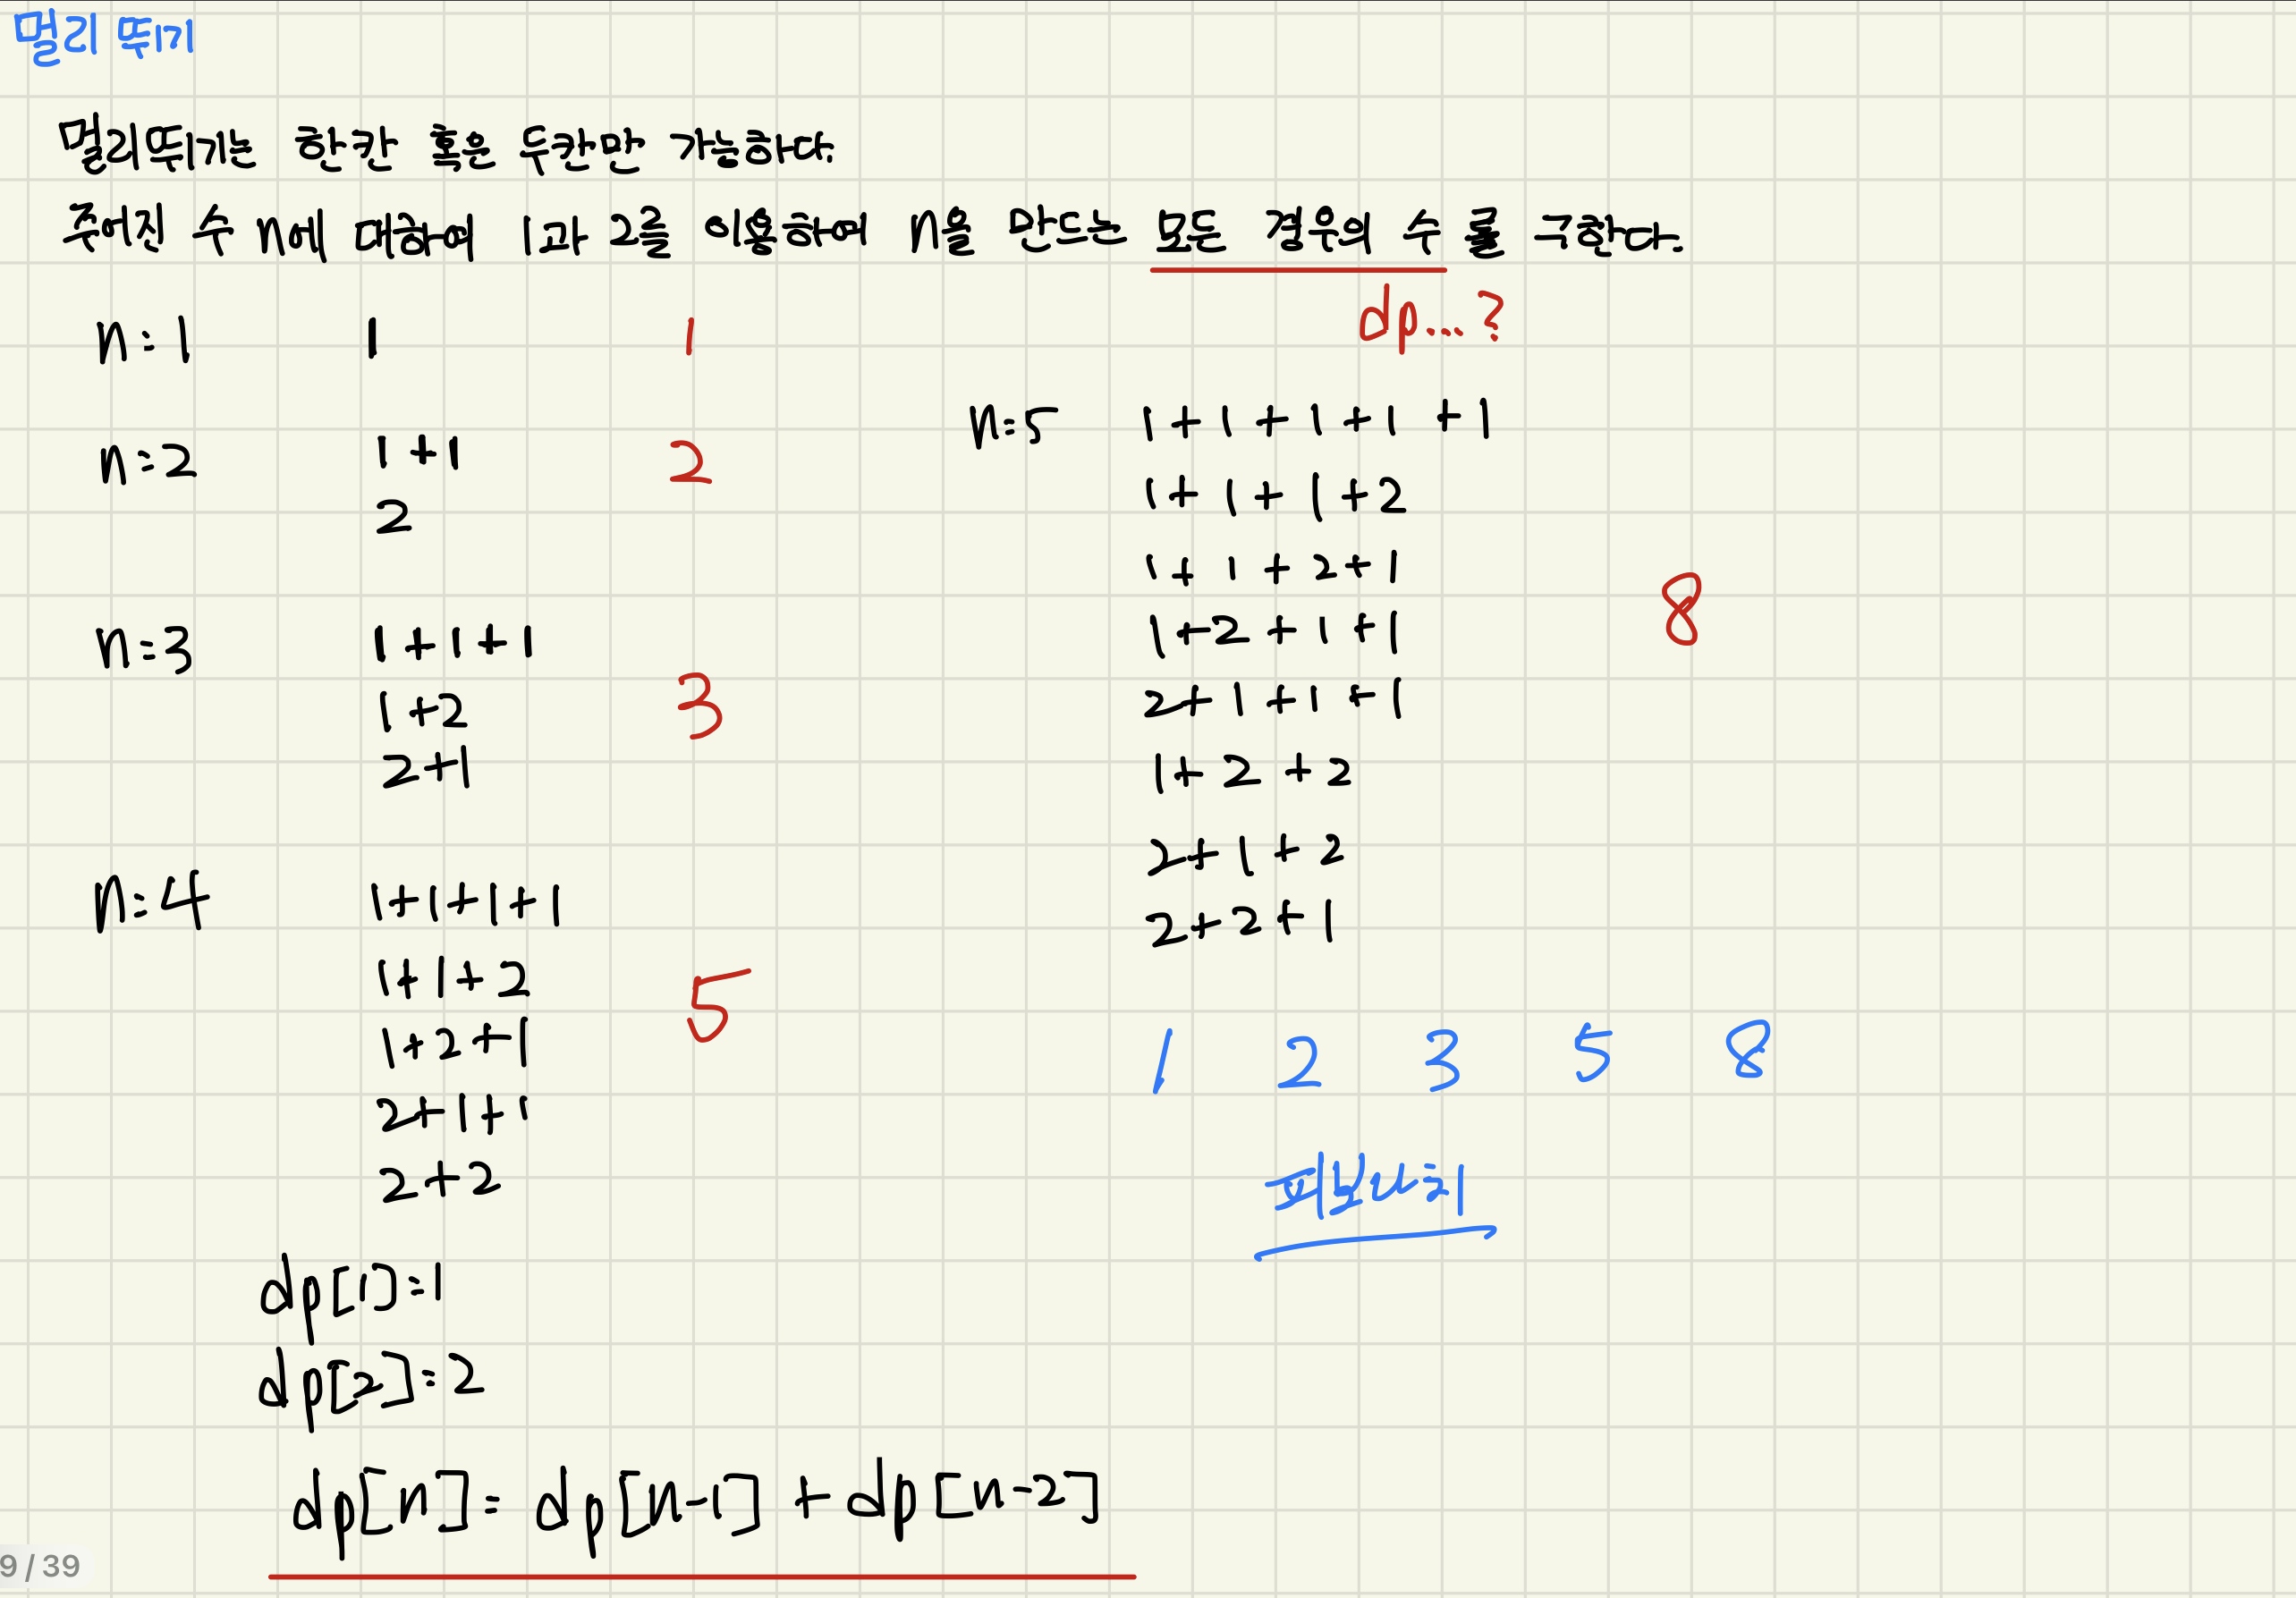 멀리 뛰기
멀리뛰기는 한칸 혹은 두칸만 가능하다.
주어진 수 n에 대하여 1과 2를 이용하여 n을 만드는 모든 경우의 수 를 구한다.
dp...?
n=1 1 1
n=2 1+1 2
2
n=3 1+1+1
1+2 3
2+1
n=4 1+1+1+1
1+1+2 5
1+2+1
2+1+1
2+2
n=5 1+1+1+1+1
1+1+1+2
1+1+2+1 8
1+2+1+1
2+1+1+1
1+2+2
2+1+2
2+2+1
1 2 3 5 8
피보나치
dp[1]=1
dp[2]=2
dp[n]= dp[n-1] + dp[n-2]
9 / 39